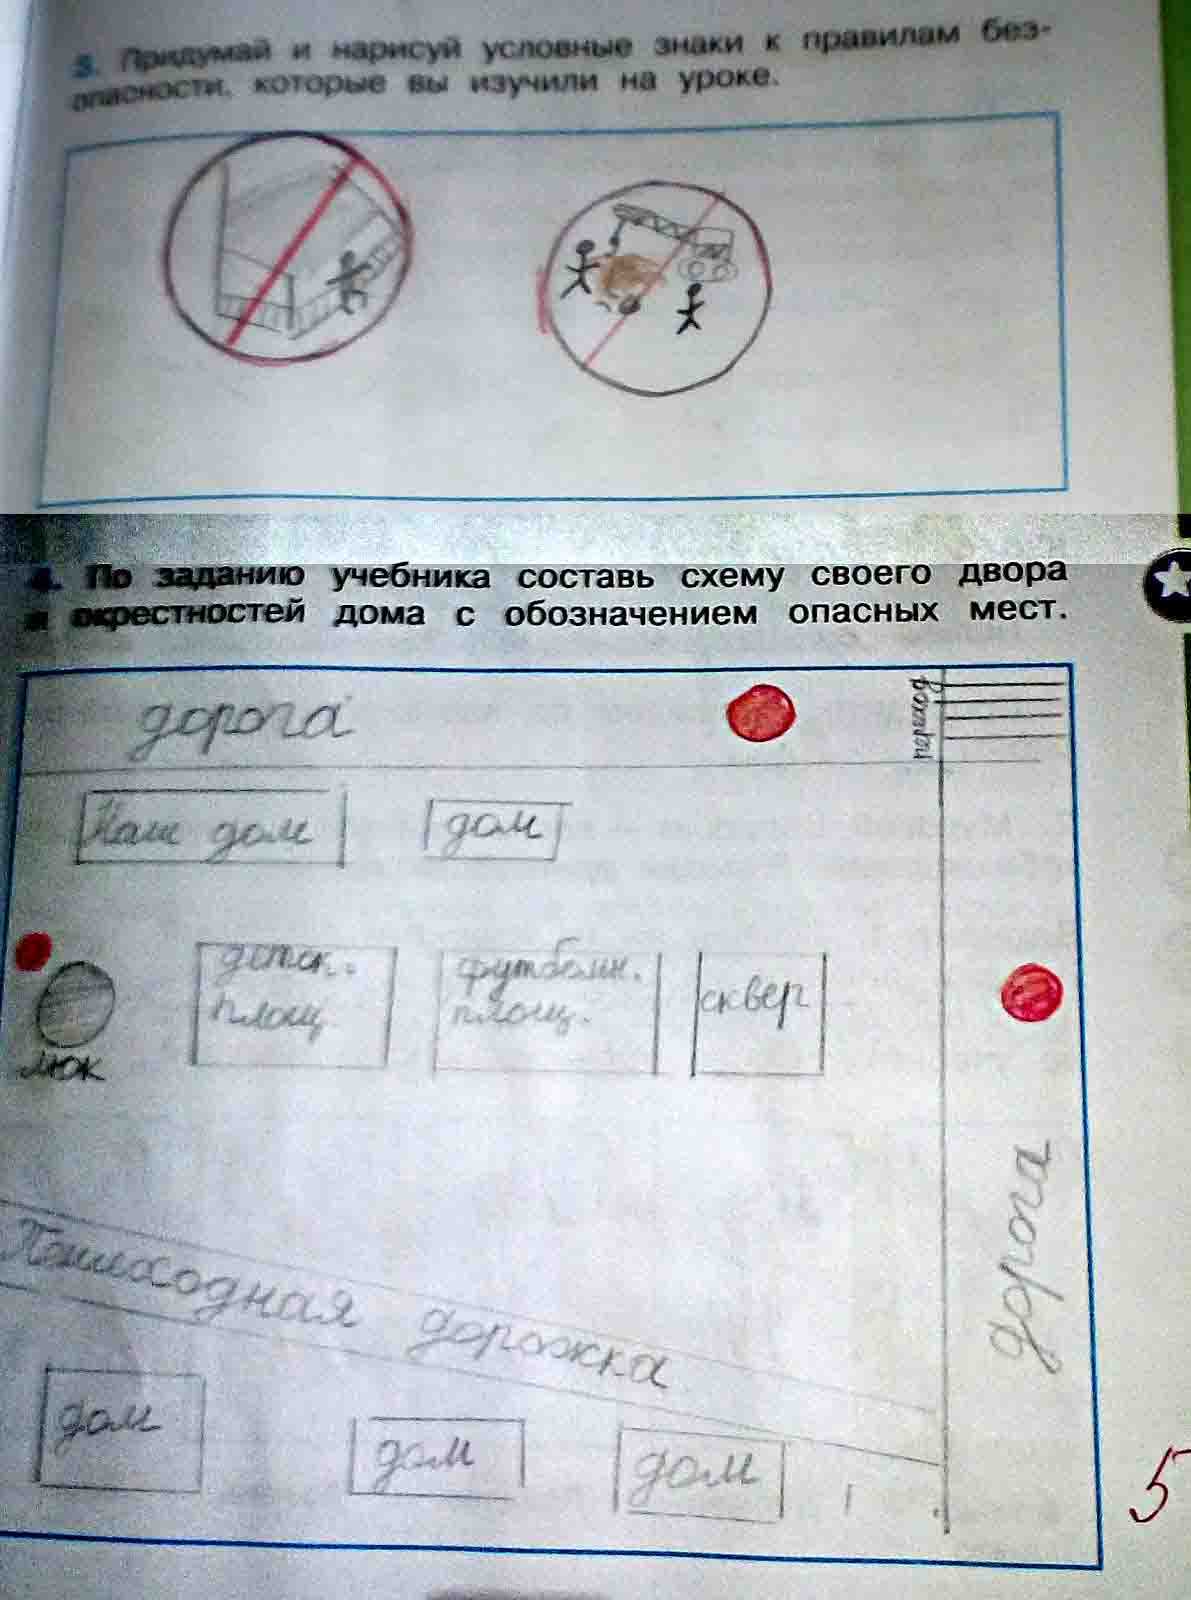 3. Придумай и нарисуй условные знаки к правилам без-
опасности, которые вы изучили на уроке.
4. По заданию учебника составь схему своего двора
и окрестностей дома с обозначением опасных мест.
дорога
переход
Наш дом
дом
детск.
площ.
футбольн.
площ.
сквер
люк
дорога
Пешеходная дорожка
дом
дом
дом
5